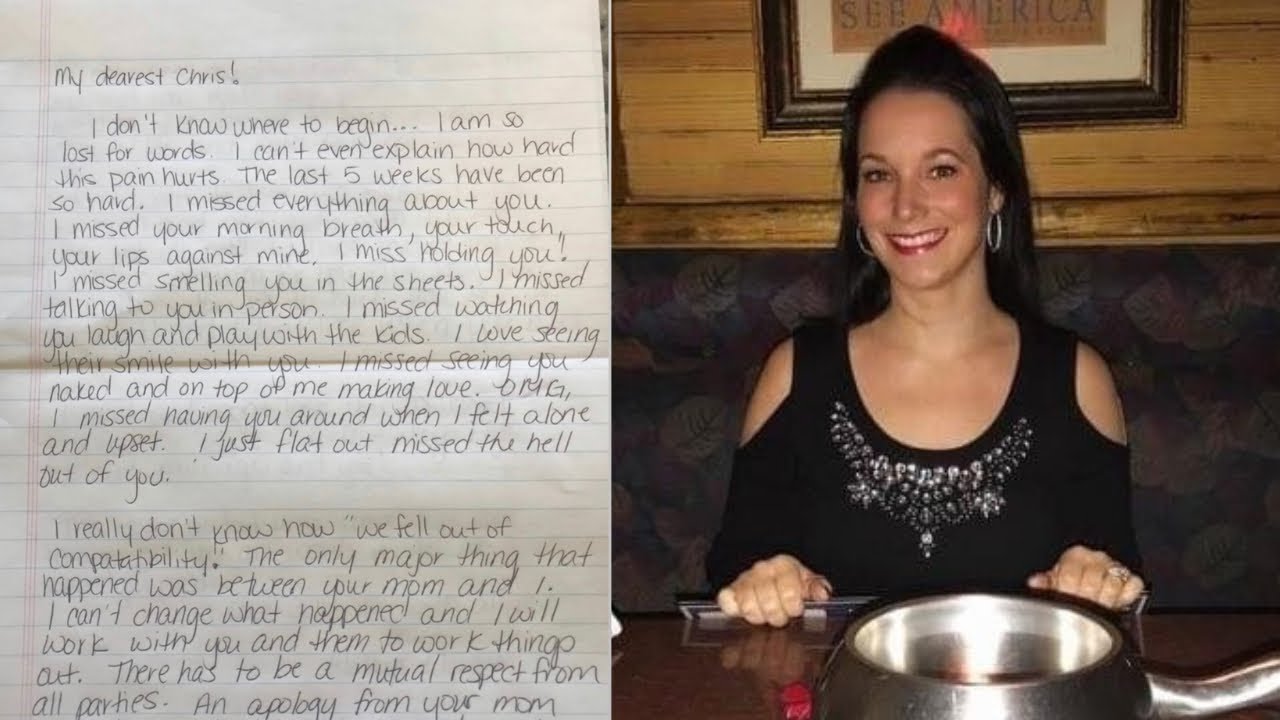 My dearest Chris!
I don't know where to begin... I am so
lost for words. I can't even explain how hard
this pain hurts. The last 5 weeks have been
so hard. I missed everything about you.
I missed your morning breath, your touch,
your lips against mine. I miss holding you!
I missed smelling you in the sheets. I missed
talking to you in-person. I missed watching
you laugh and play with the kids. I love seeing
their smile with you. I missed seeing you
naked and on top of me making love. OMG,
I missed having you around when I felt alone
and upset. I just flat out missed the hell
out of you.
I really don't know how "we fell out of
compatability!" The only major thing that
happened was between your mom and I.
I can't change what happened and I will
work with you and them to work things
out. There has to be a mutual respect from
all parties. An apology from your mom
SEE AMERICA